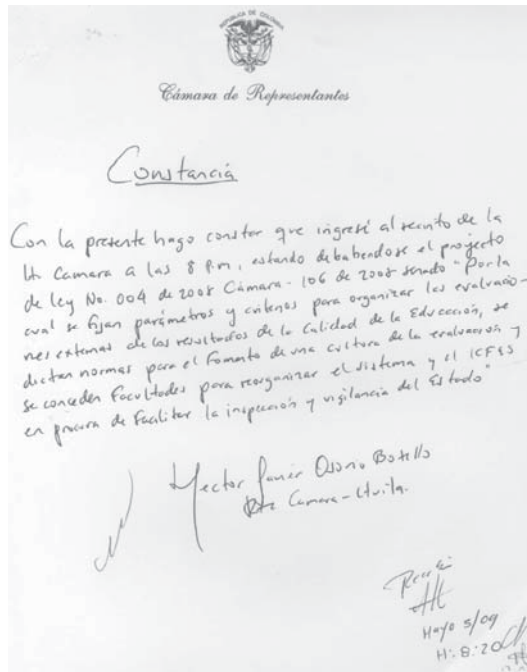 REPUBLICA DE COLOMBIA
Cámara de Representantes
Constancia
Con la presente hago constar que ingresé al recinto de la
H. Camara a las 8 P.m, estando debatiendose el proyecto
de ley No. 004 de 2008 Cámara - 106 de 2008 senado "Por la
cual se fijan parámetros y criterios para organizar las evaluacio-
nes externas de los resultados de la Calidad de la Educación, se
dictan normas para el fomento de una cultura de la evaluación y
se conceden facultades para reorganizar el sistema y el ICFES
en procura de facilitar la inspección y vigilancia del Estado"
Hector Javier Osorio Botello
Rte Camara - Huila.
Mayo 5/09
H: 8:20